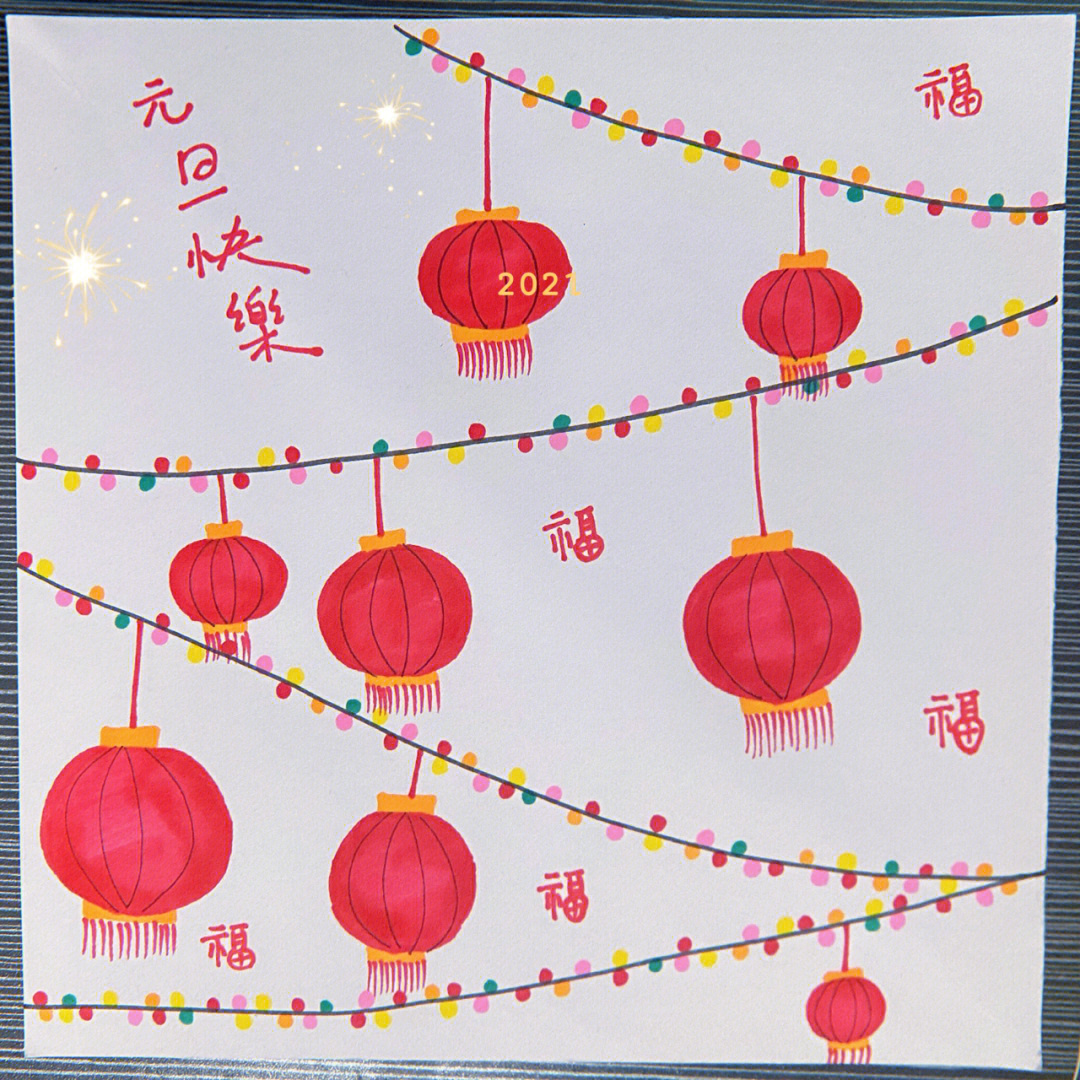 元旦快樂
福
2021
福
福
福
福